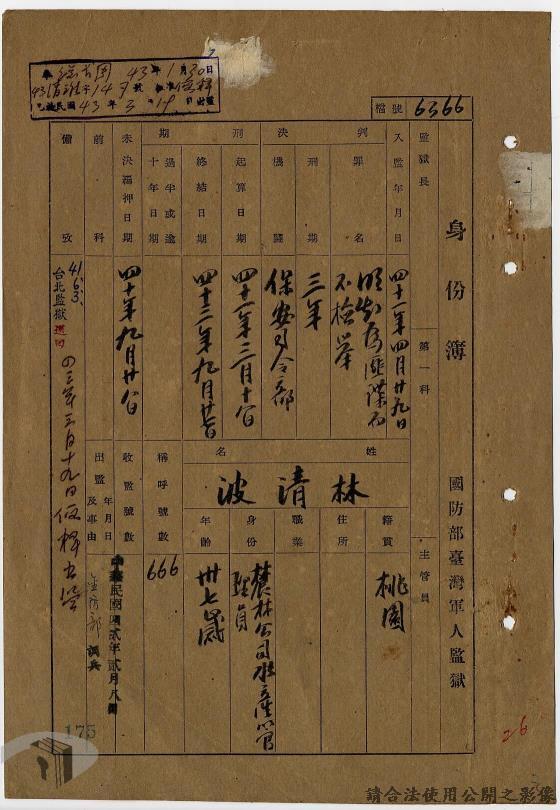 身份簿
國防部臺灣軍人監獄
檔號
6366
奉
43年1月30日
43年3月19日出監
監獄長
第一科
主管員
入監年月日
四十一年四月廿九日
判決
罪名
明知為匪諜而不檢舉
刑期
三年
機關
保安司令部
刑期
起算日期
終結日期
四十三年九月廿日
過半或逾十年日期
未決羈押日期
四十年九月廿日
前科
備攷
41.6.3.
台北監獄
四三年三月十九日假釋出監
姓名
林清波
籍貫
桃園
住所
職業
身份
農林公司水產
年齡
卅七歲
稱呼號數
666
收監號數
出監年月日及事由
中華民國
調兵
175
26
請合法使用公開之影像